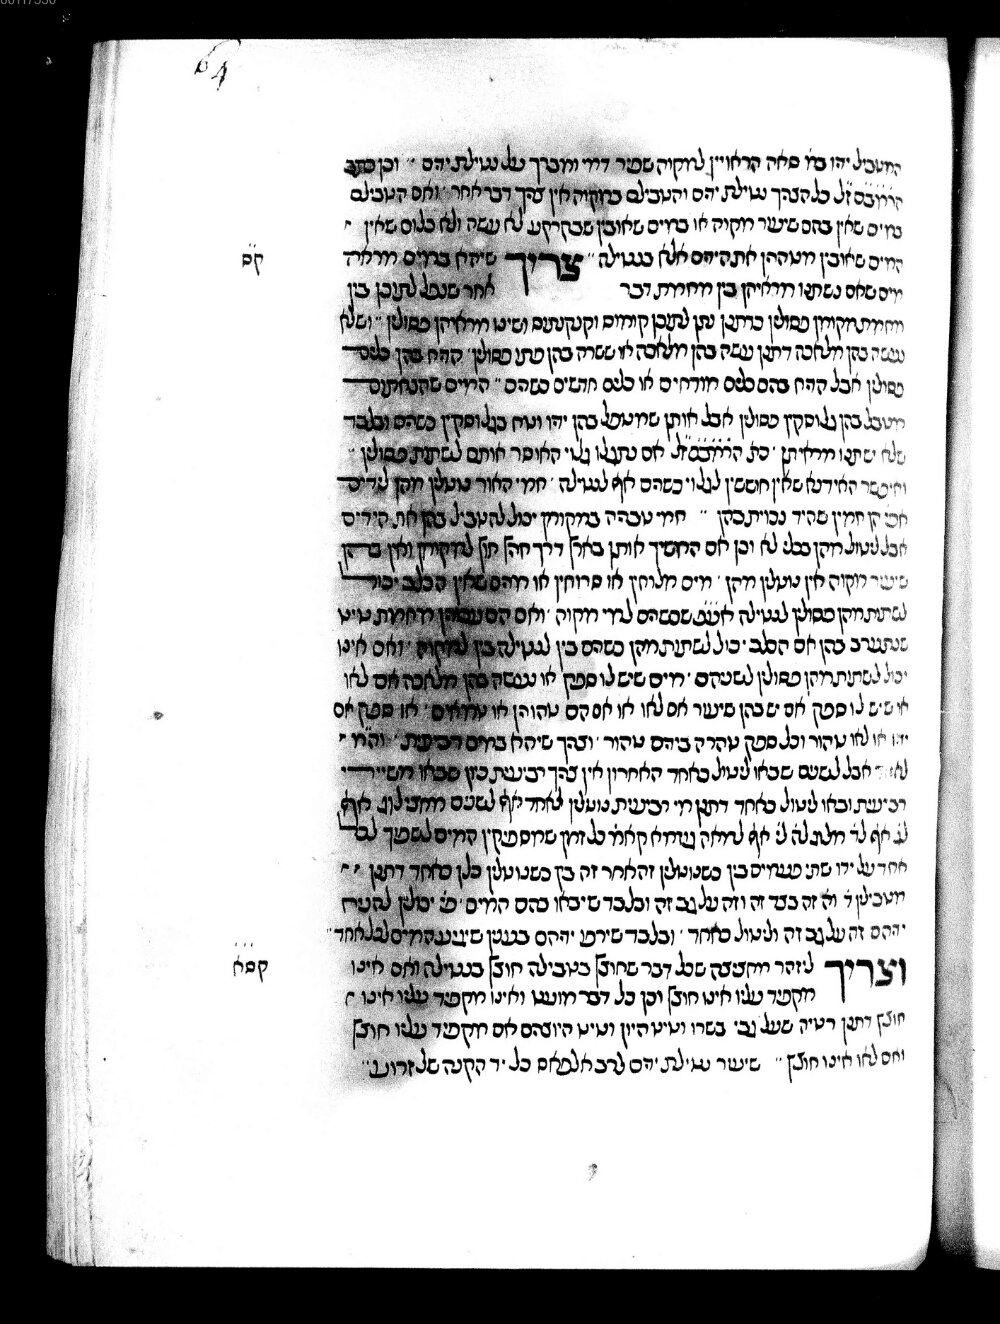 64
המטביל ידיו במ׳ סאה הראויין למקוה שפיר דמי ומברך על נטילת ידים ״ וכן כתב
הרמב״ם ז״ל כל הצריך נטילת ידים והטבילם במקוה אין צריך דבר אחר ׳ ואם הטבילם
במים שאין בהם שיעור מקוה או במים שאובין שבקרקע לא עשה ולא כלום שאין
המים שאובין מטהרין את הידים אלא בנטילה ״ צריך שיהא במים מראה
קס
מים שאם נשתנו מראיהן בין מחמת דבר אחר שנפל לתוכן בין
מחמת מקומן פסולין כדתנן נתן לתוכן קומוס וקנקנתום ושינו מראיהן פסולין ״ ושלא
נעשה בהן מלאכה דתנן עשה בהן מלאכה או ששרה בהן פתו פסולין ׳ הדיח בהן כלים
פסולין אבל הדיח בהם כלים מודחים או כלים חדשים כשרים ״ המים שהנחתום
מטבל בהן גלוסקין פסולין אבל אותן שמטפל בהן ידיו וטח בגלוסקין כשרים ובלבד
שלא ישתנו מראיתן ׳ כת׳ הרמב״ם ז״ל אם נתגלו גלוי האוסר אותם לשתות פסולין ״
ואיפשר האידנא שאין חוששין לגלוי כשרים אף לנטילה ׳ חמי האור נוטלין מהן לידים
אפי׳ הן חמין שהיד נכוית בהן ״ חמי טבריה במקומן יכול להטביל בהן את הידים
אבל ליטול מהן בכלי לא וכן אם המשיך אותן בארץ דרך חריץ חוץ למקומן ואין בהן
שיעור מקוה אין נוטלין מהן ׳ מים מלוחין או סרוחין או מרים שאין הכלב יכול
לשתות מהן פסולין לנטילה אע״פ שכשרים למי מקוה ׳ ואם הם עכורין מחמת טיט
שנתערב בהן אם הכלב יכול לשתות מהן כשרים בין לנטילה בין למקוה ׳ ואם אינו
יכול לשתות מהן פסולין לשניהם ׳ מים שיש לו ספק או נעשה בהן מלאכה אם לאו
או שיש לו ספק אם יש בהן שיעור אם לאו או אם הם טהורין או טמאים ׳ או ספק אם
ידיו או לאו טהור וכל ספק טהרה בידים טהור ׳ וצריך שיהא במים רביעית ׳ וה״מ
לאחד אבל לשנים שבאו ליטול כאחד האחרון אין צריך רביעית כיון שבאו משיירי
רביעית ובאו ליטול כאחד דתנן מי רביעית נוטלין לאחד אף לשנים מחצי לוג אף
לג׳ אף לד׳ מלוג לה׳ לי׳ אף למאה וגמרא קאמ׳ כל זמן שמספיקין המים לשפוך לכל
אחד על ידו שתי פעמים בין כשנוטלין זה אחר זה בין כשנוטלין כלן כאחד דתנן
מטבילין ד׳ וה׳ זה בצד זה וזה על גב זה ובלבד שיבאו בהם המים ׳ פי׳ יכולין להניח
ידיהם זה על גב זה וליטול כאחד ׳ ובלבד שירפו ידיהם בענין שיגיעו המים לכל אחד ״
וצריך ליזהר מחציצה שכל דבר שחוצץ בטבילה חוצץ בנטילה ואם אינו
קסא
מקפיד עליו אינו חוצץ וכן כל דבר מועט ואינו מקפיד עליו אינו
חוצץ דתנן רטיה שעל גבי בשרו וטיט היון וטיט היוצרים אם מקפיד עליו חוצץ
ואם לאו אינו חוצץ ״ שיעור נטילת ידים לרב אלפאס כל יד הקנה של זרוע ״